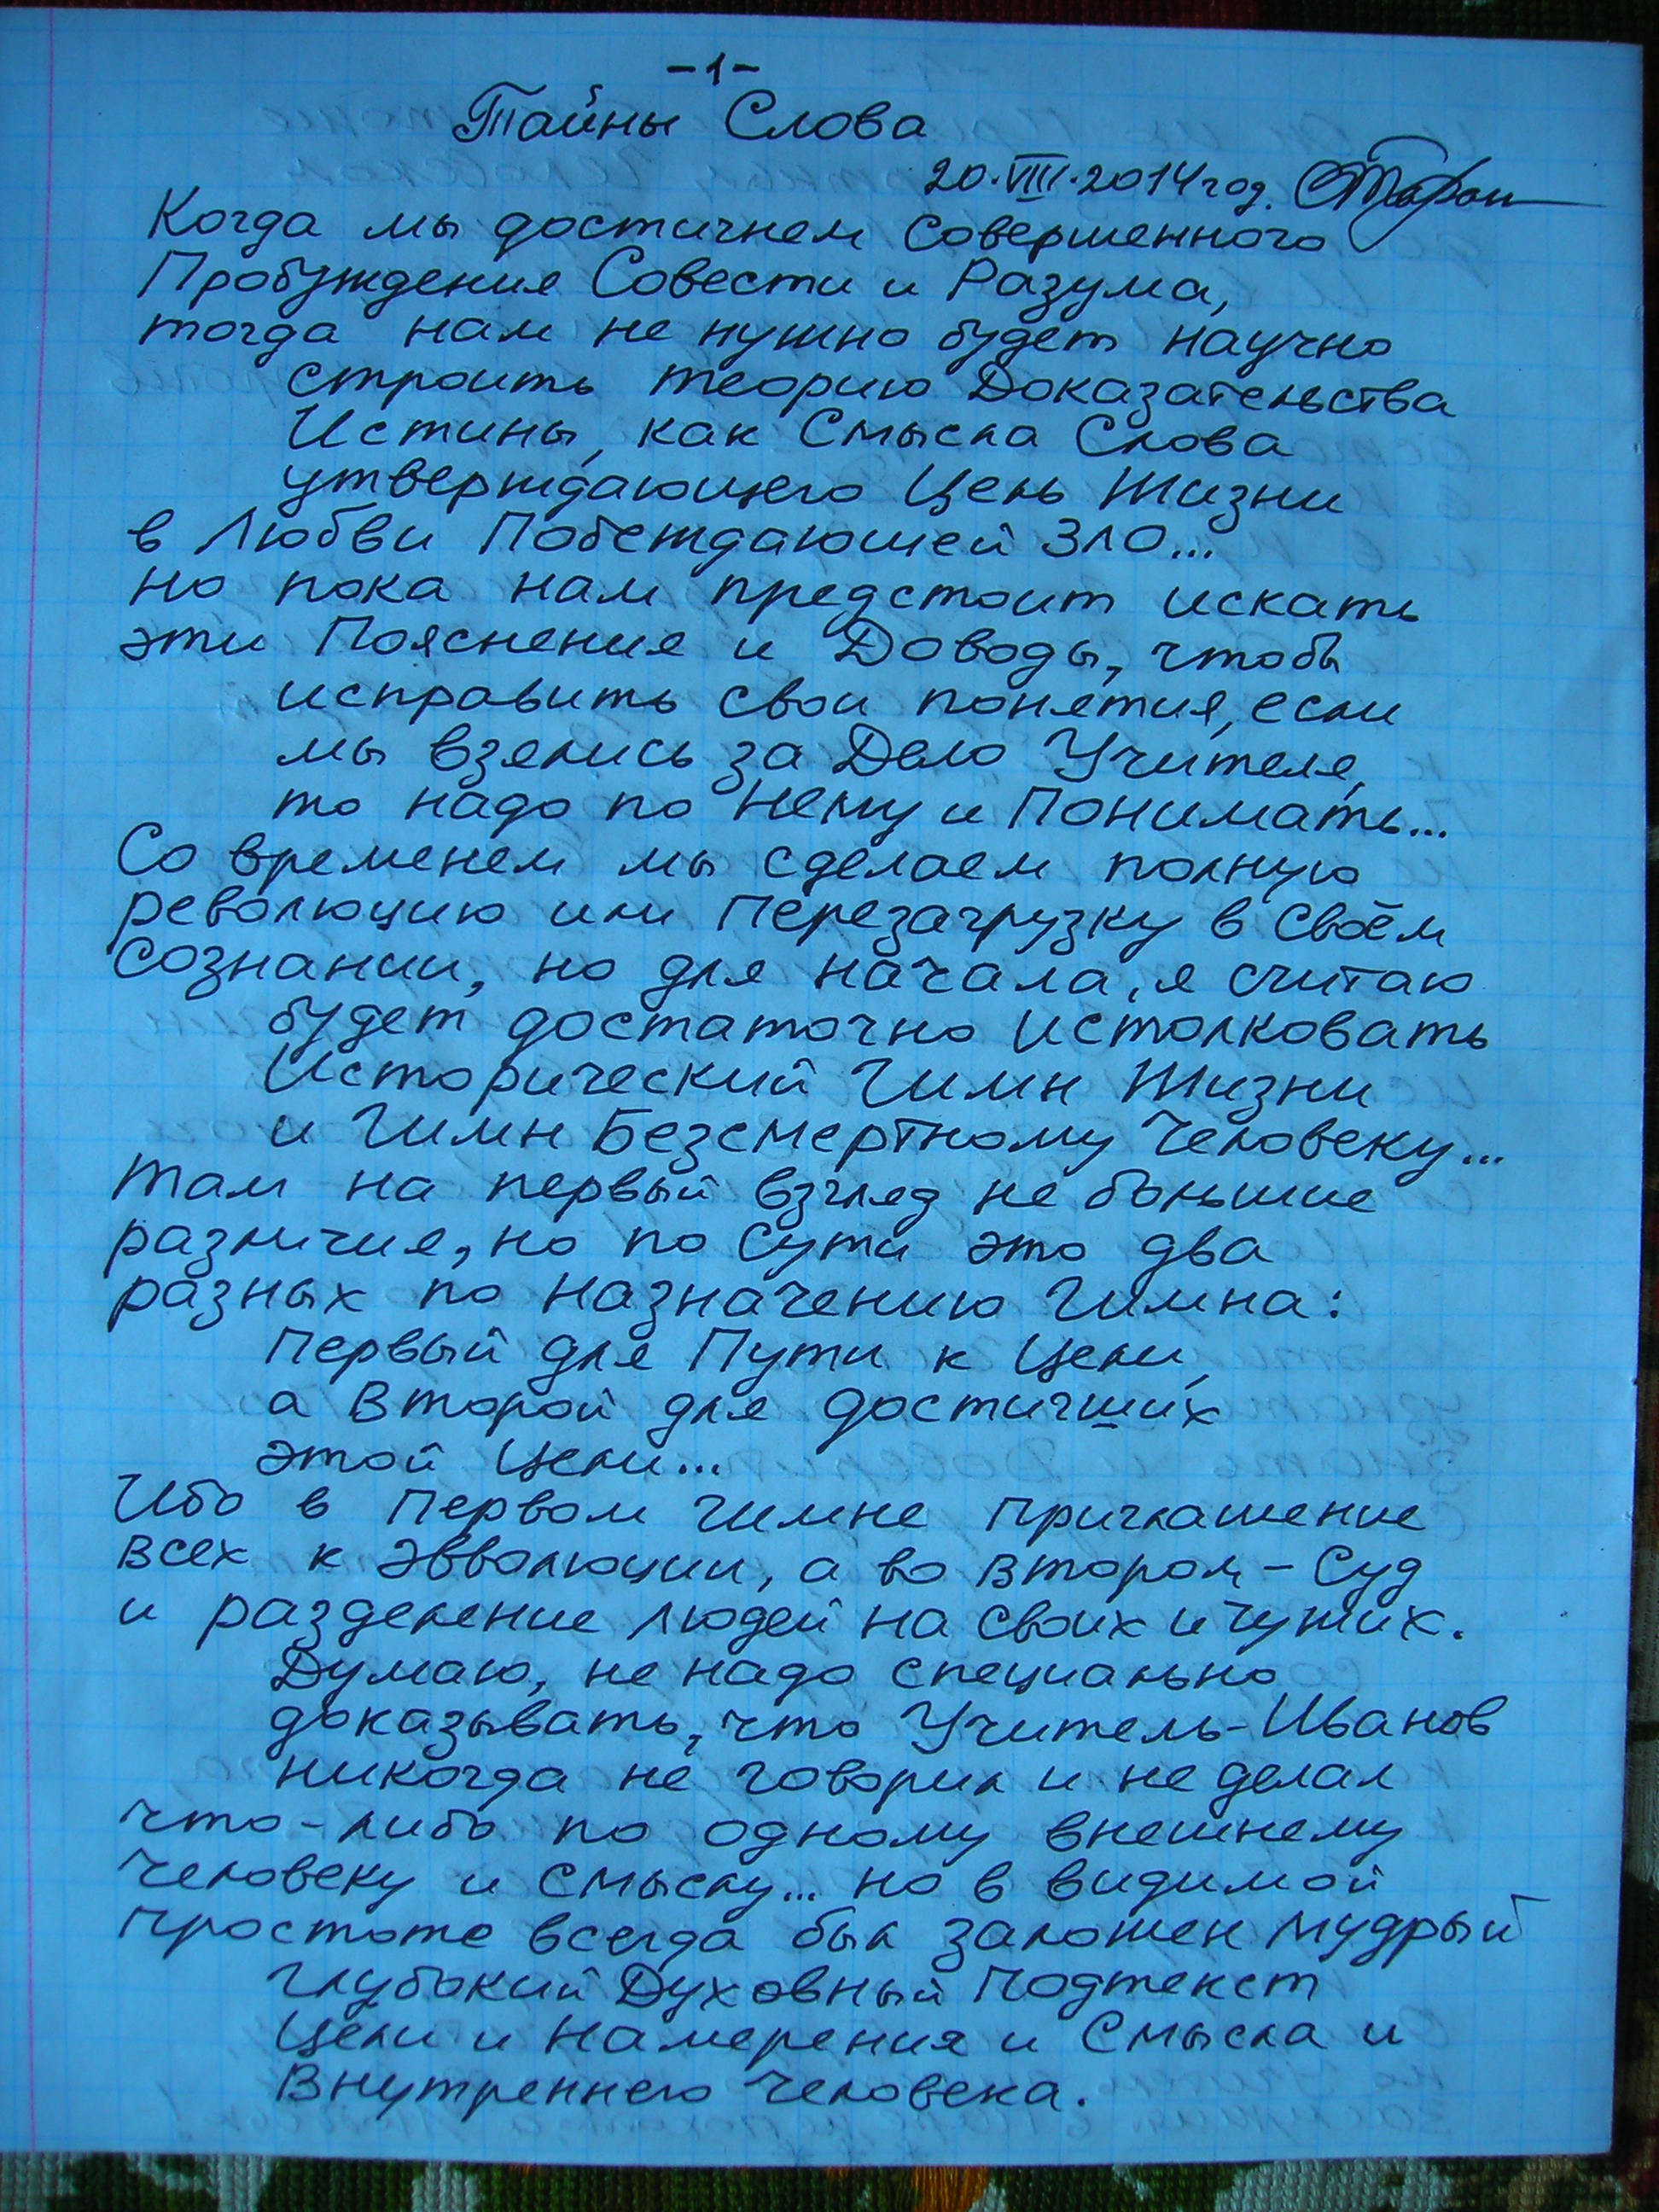 -1-
Тайны Слова
20.VIII.2014 год.
Когда мы достигнем Совершенного
Пробуждения Совести и Разума,
тогда нам не нужно будет научно
строить теорию Доказательства
Истины, как Смысла Слова
утверждающего Цель Жизни
в Любви Побеждающей Зло...
но пока нам предстоит искать
эти Пояснения и Доводы, чтобы
исправить свои понятия, если
мы взялись за Дело Учителя,
то надо по Нему и Понимать...
Со временем мы сделаем полную
революцию или Перезагрузку в Своём
Сознании, но для начала, я считаю
будет достаточно истолковать
Исторический Гимн Жизни
и Гимн Безсмертному Человеку...
Там на первый взгляд не большие
различия, но по Сути это два
разных по назначению Гимна:
Первый для Пути к Цели,
а Второй для достигших
этой Цели...
Ибо в Первом Гимне приглашение
всех к Эвволюции, а во Втором - Суд
и разделение людей на Своих и Чужих.
Думаю, не надо специально
доказывать, что Учитель-Иванов
никогда не говорил и не делал
что-либо по одному внешнему
Человеку и Смыслу... но в видимой
простоте всегда был заложен мудрый
глубокий Духовный Подтекст
Цели и Намерения и Смысла и
Внутреннего Человека.